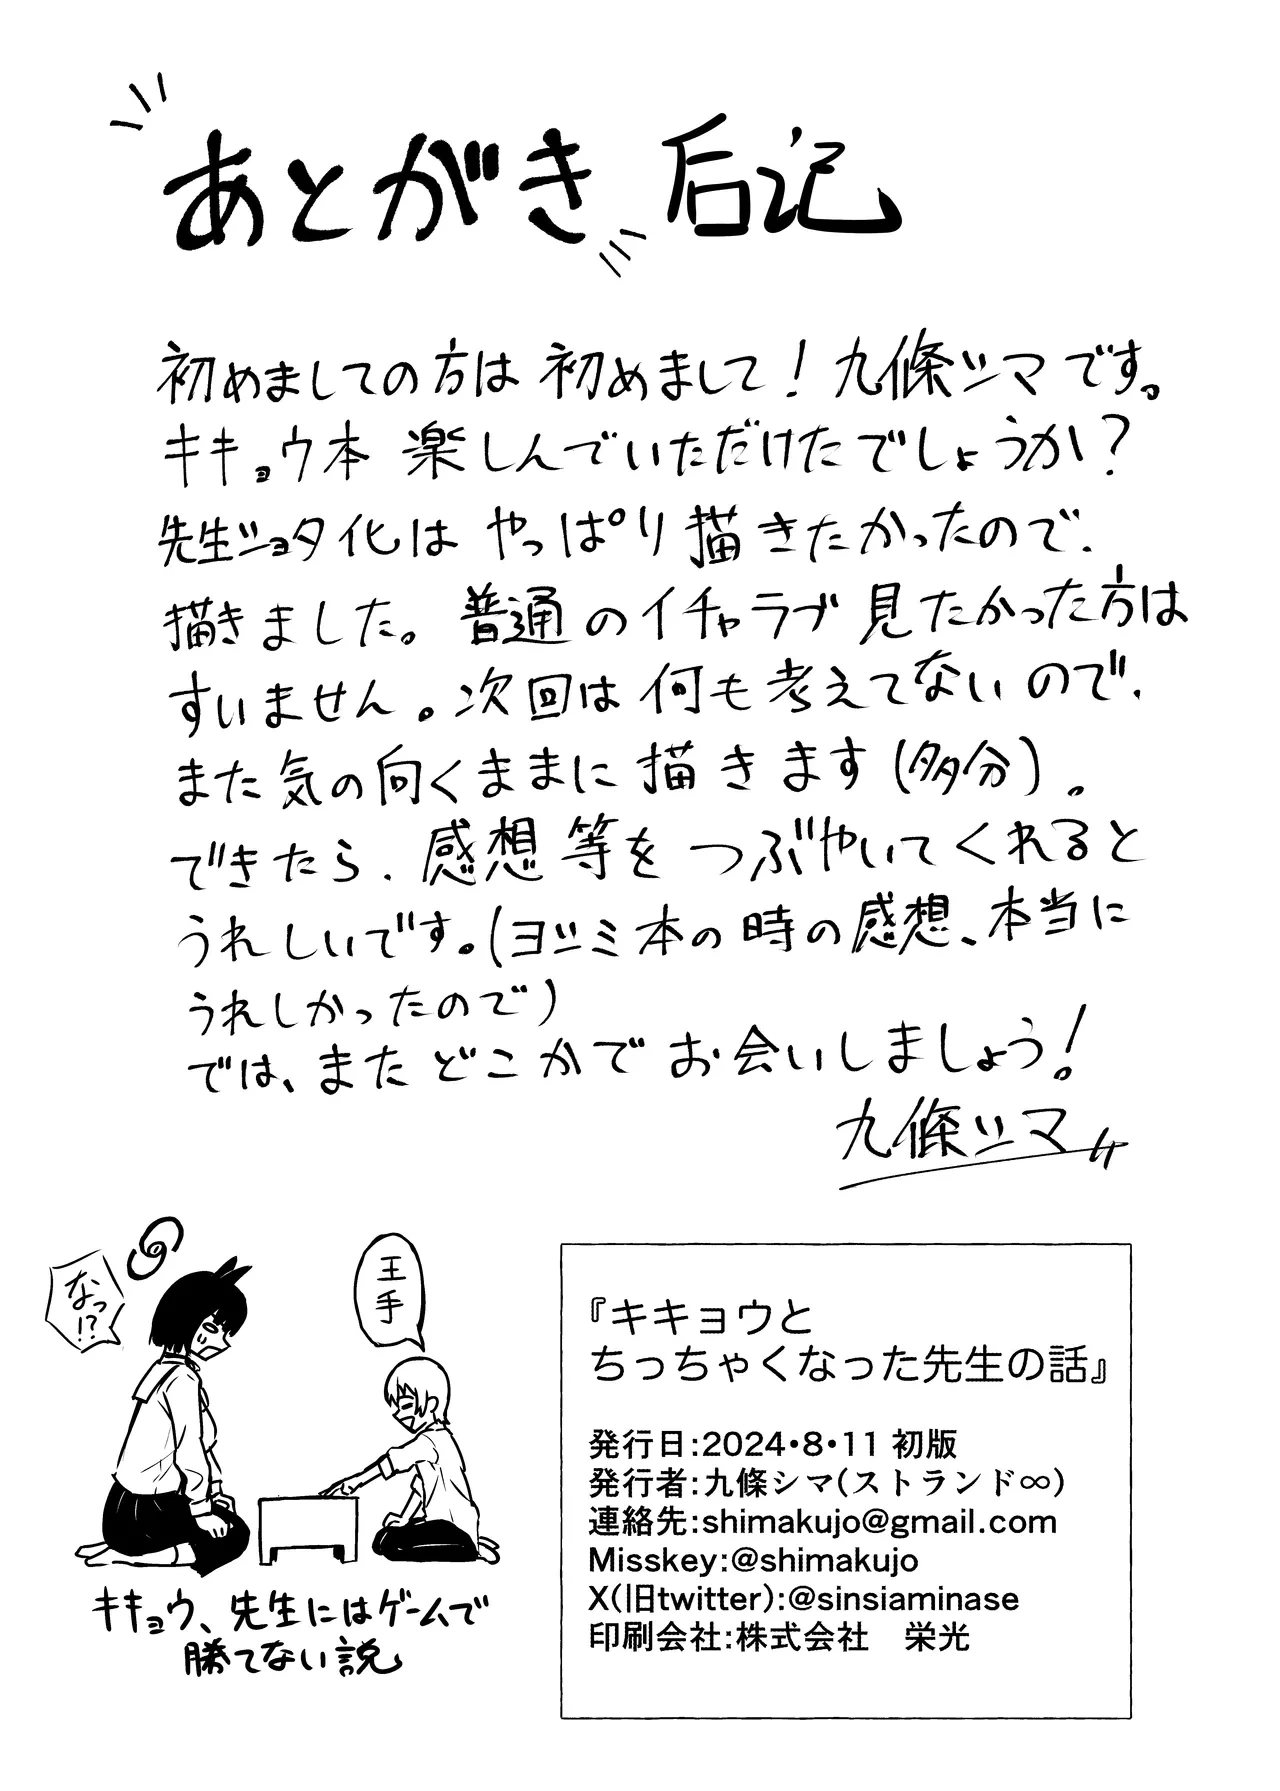 あとがき 后记
初めましての方は 初めまして！ 九條シマです。
キキョウ本 楽しんでいただけたでしょうか？
先生ショタ化は やっぱり描きたかったので、
描きました。普通のイチャラブ見たかった方は
すいません。次回は何も考えてないので、
また気の向くままに描きます(多分)。
できたら、感想等をつぶやいてくれると
うれしいです。(ヨツミ本の時の感想、本当に
うれしかったので)
では、またどこかでお会いしましょう！
九條シマ
なっ!?
王手
キキョウ、先生にはゲームで
勝てない説
『キキョウと
ちっちゃくなった先生の話』
発行日:2024・8・11 初版
発行者:九條シマ(ストランド∞)
連絡先:shimakujo@gmail.com
Misskey:@shimakujo
X(旧twitter):@sinsiaminase
印刷会社:株式会社　栄光